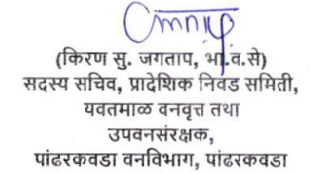 (किरण सु. जगताप, भा.व.से)
सदस्य सचिव, प्रादेशिक निवड समिती,
यवतमाळ वनवृत्त तथा
उपवनसंरक्षक,
पांढरकवडा वनविभाग, पांढरकवडा